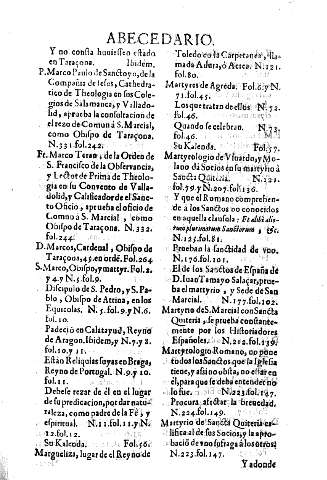 ABECEDARIO.
Y no consta huuiessen estado
en Taraçona. Ibidem.
P. Marco Paulo de Sanctoyo, de la
Compañia de Iesus, Cathedra-
tico de Theologia en sus Cole-
gios de Salamanca, y Vallado-
lid, aprueba la consultacion de
el rezo de Comun à S. Marcial,
como Obispo de Taraçona.
N.331. fol.242.
Fr. Marco Teran, de la Orden de
S. Francisco de la Obseruancia,
y Lector de Prima de Theolo-
gia en su Convento de Valla-
dolid, y Calificador de el Sanc-
to Oficio, aprueba el oficio de
Comun à S. Marcial, como
Obispo de Taraçona. N.332.
fol.244.
D. Marcos, Cardenal, Obispo de
Taraçona, 45. en ordē. Fol.264
S. Marco, Obispo, y martyr. Fol.2.
74. y N.5. fol.9.
Discipulo de S. Pedro, y S. Pa-
blo, Obispo de Atina, en los
Equicolas. N.5. fol.9. y N.6.
fol.10.
Padeciò en Calatayud, Reyno
de Aragon. Ibidem, y N.7. y 8.
fol.10. y 11.
Estàn Reliquias suyas en Braga,
Reyno de Portugal. N.9. y 10.
fol.11.
Debese rezar de èl en el lugar
de su predicacion, por dar natu-
raleza, como padre de la Fè, y
espiritual. N.11. fol.11. y N.
12. fol.12.
Su Kalenda. Fol.56.
Margueliza, lugar de el Reyno de
Toledo en la Carpetanea, lla-
mada Adura, ò Aeree. N.121.
fol.80.
Martyres de Agreda. Fol.6. y N.
71. fol.45.
Los que tratan de ellos N.72.
fol.46.
Quando se celebran. N.73.
fol.46.
Su Kalenda. Fol.37.
Martyrologio de Vsuardo, y Mo-
lano dà Socios en su martyrio à
Sancta Quiteria. N.121.
fol.79. y N.207. fol.136.
Y que el Romano comprehen-
de à los Sanctos no conocidos
en aquella clausula: Et alibi aliorum
plurimorum Sanctorum, &c.
N.125. fol.81.
Prueban la sanctidad de vno.
N.176. fol.101.
El de los Sanctos de España de
D. Iuan Tamayo Salaçar, prue-
ba el martyrio, y Sede de San
Marcial. N.177. fol.102.
Martyrio de S. Marcial con Sancta
Quiteria, se prueba constante-
mente por los Historiadores
Españoles. N.212. fol.139.
Martyrologio Romano, no pone
todos los Sanctos que la Iglesia
tiene, y assi no obsta, no estàr en
èl, para que se deba entender no
lo fue. N.223. fol.147.
Procura afectar la breuedad.
N.224. fol.149.
Martyrio de Sancta Quiteria ca-
lifica al de sus Socios, y la apro-
bacion de vno sufraga à los otros
N.223. fol.147.
Y adonde